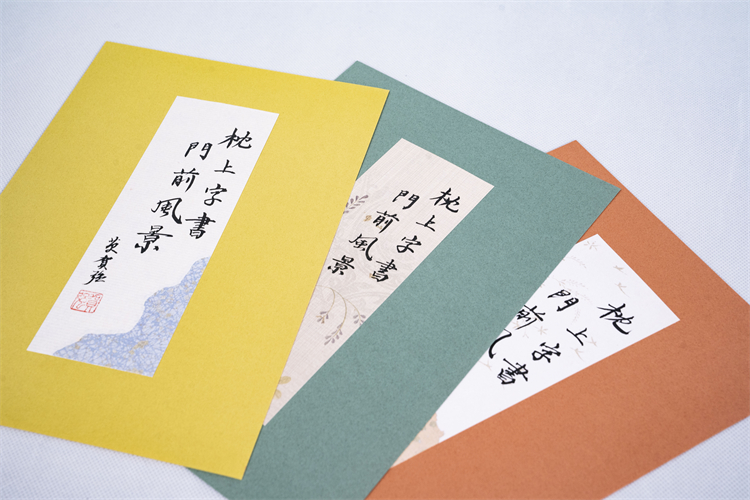 枕上字書
門前風景
枕上字書
門前風景
枕上字書
門前